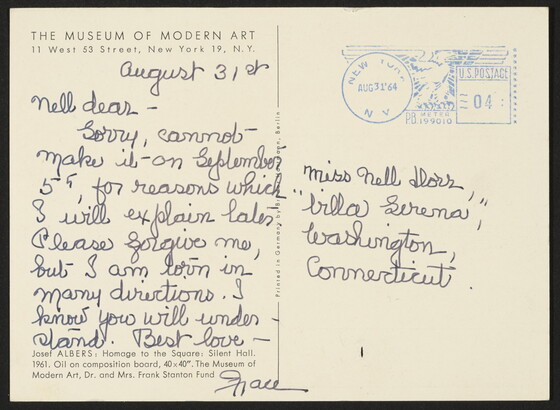 THE MUSEUM OF MODERN ART
11 West 53 Street, New York 19, N.Y.
August 31st
Nell dear –
Sorry, cannot
make it on September
5th, for reasons which
I will explain later.
Please forgive me,
but I am torn in
many directions. I
know you will under-
stand. Best love –
Grace
Josef ALBERS: Homage to the Square: Silent Hall.
1961. Oil on composition board, 40×40". The Museum of
Modern Art, Dr. and Mrs. Frank Stanton Fund
Printed in Germany by Berlin
NEW YORK
AUG 31 '64
N Y
U.S. POSTAGE
04
P.B. METER
199010
Miss Nell Dorr,
"Villa Serena",
Washington,
Connecticut.